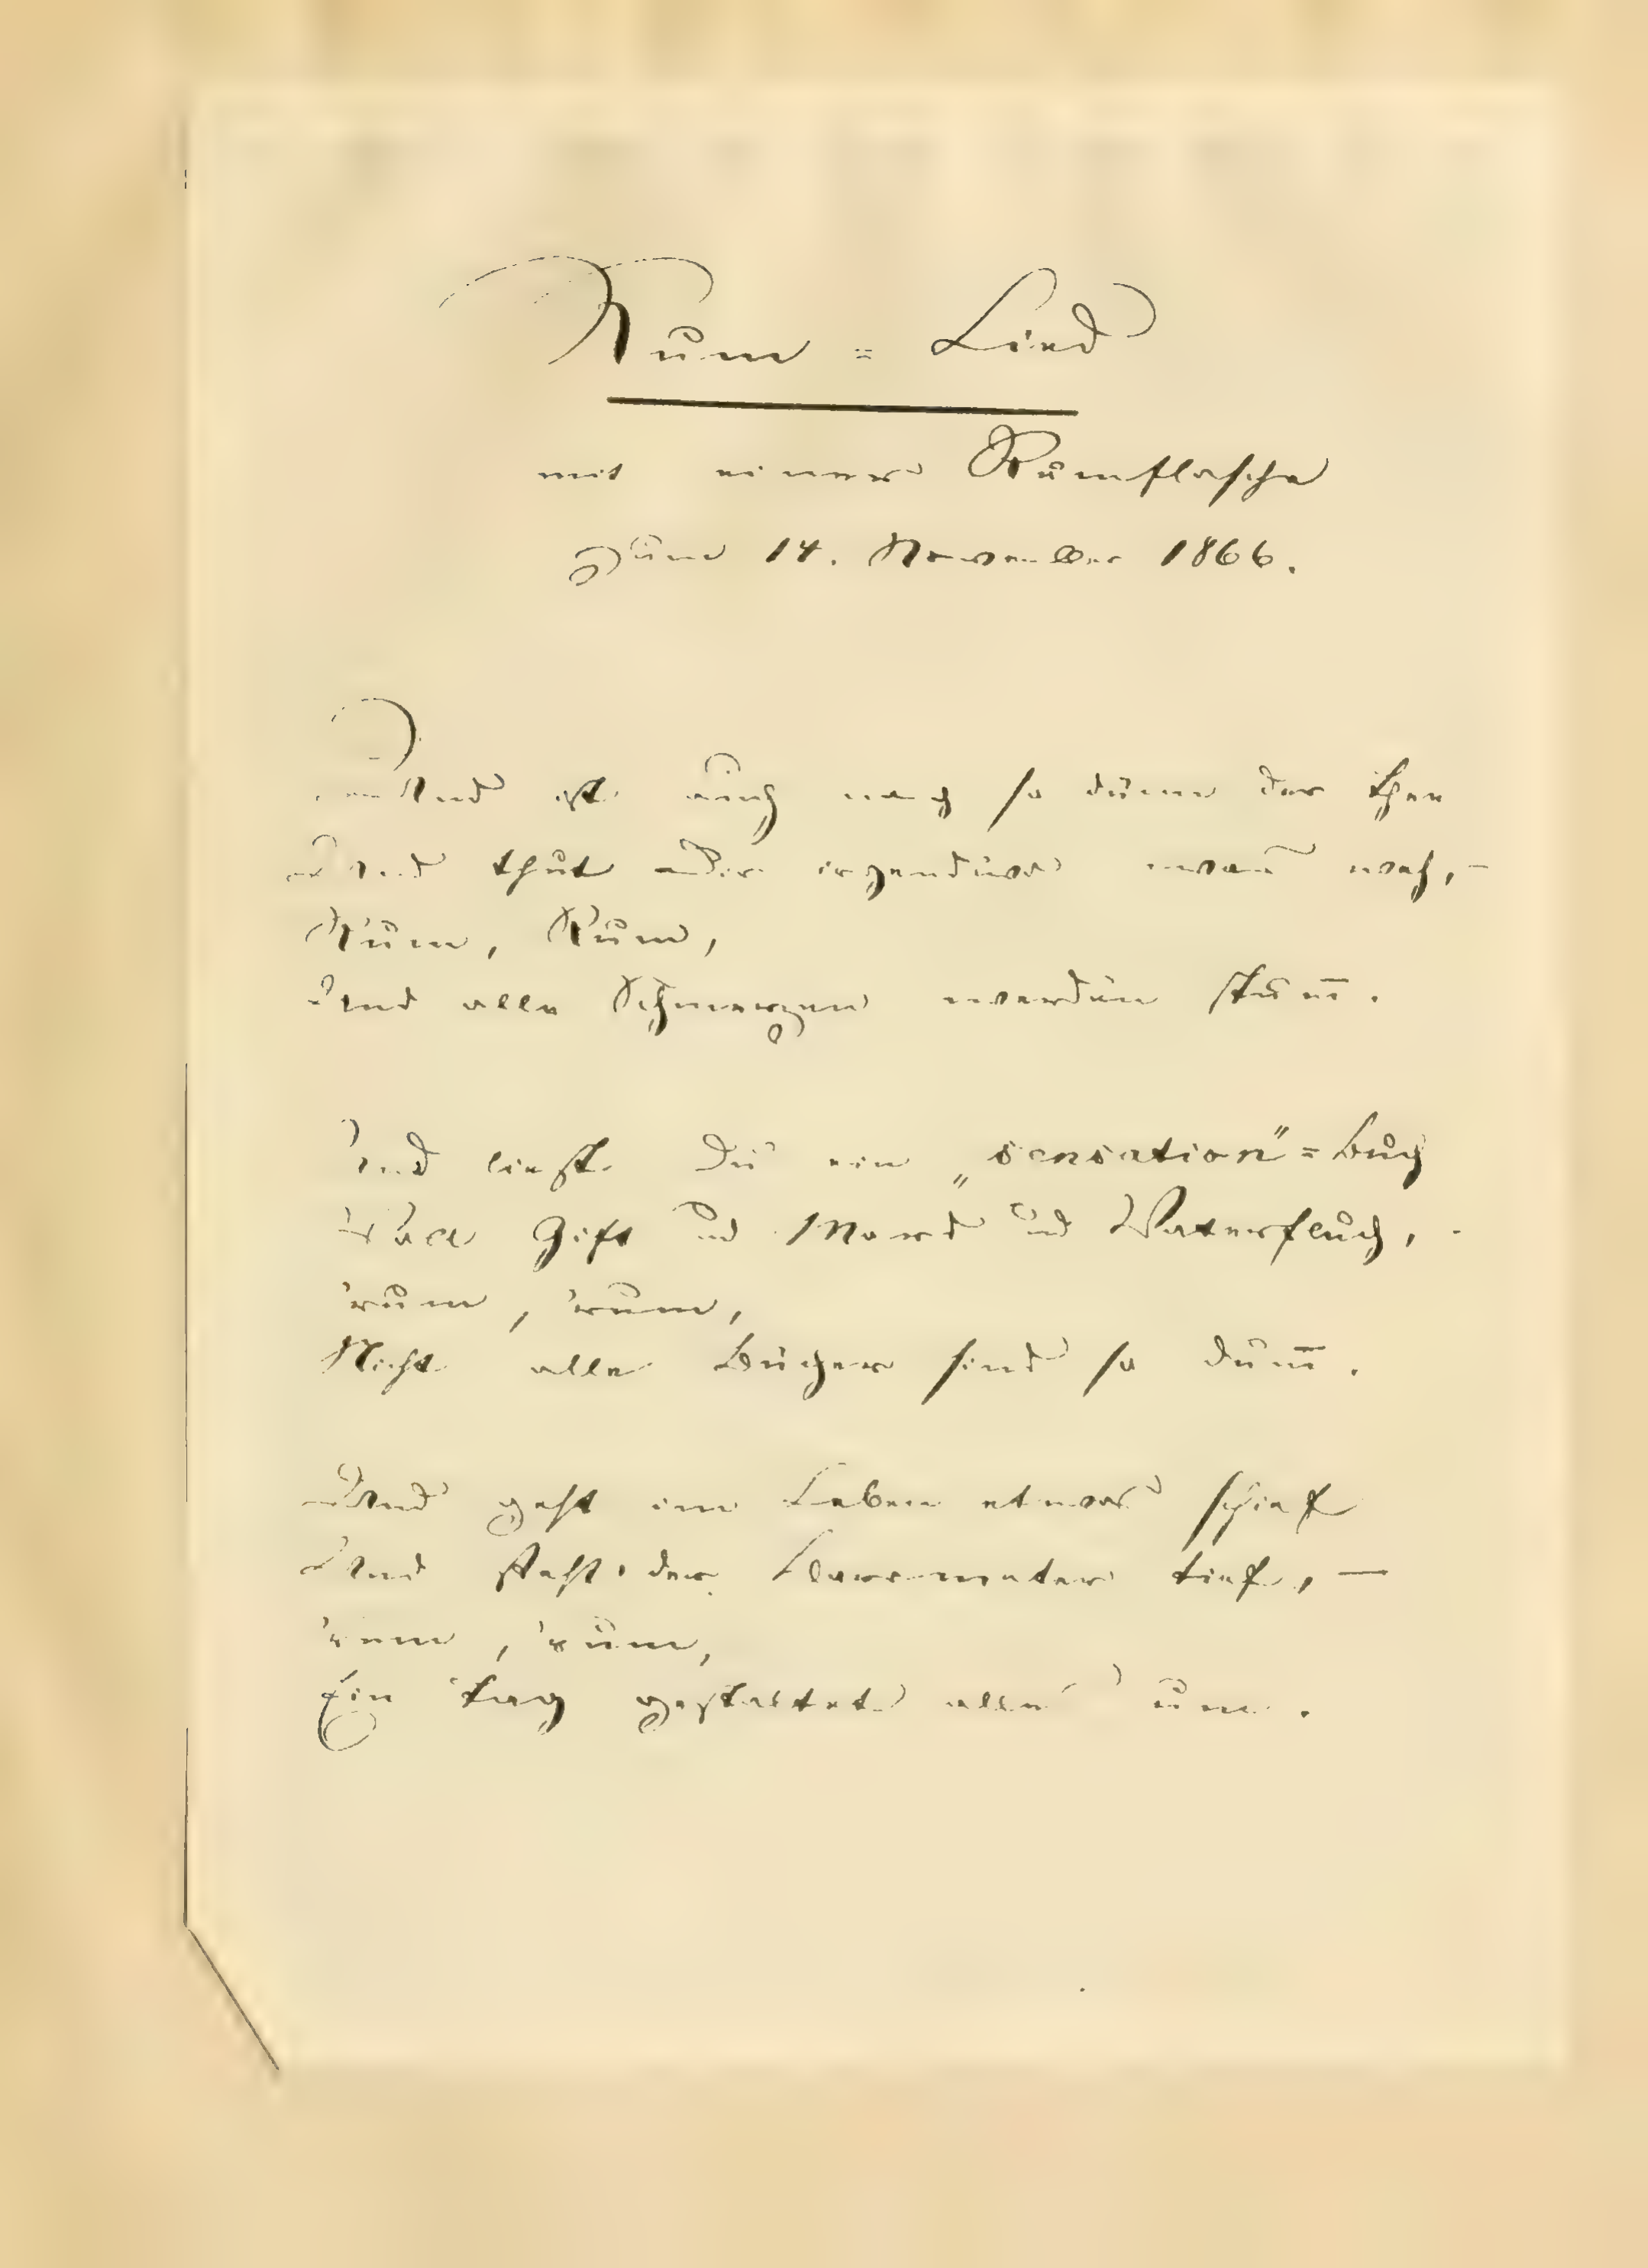 Rum = Lied
mit einer Rumflasche
zum 14. November 1866.
Und ist auch noch so dünn der Thee
Und thut Dir irgendwo was weh, –
Rum, Rum,
Und alle Schmerzen werden stum̄.
Und liest Du ein „sensation" = Buch
Voll Gift und Mord und Vaterfluch, -
'rum, 'rum,
Nicht alle Bücher sind so dum̄.
Und geht im Leben etwas schief
Und steht der Barometer tief, —
'rum, 'rum,
Ein Tag gestaltet alles um.